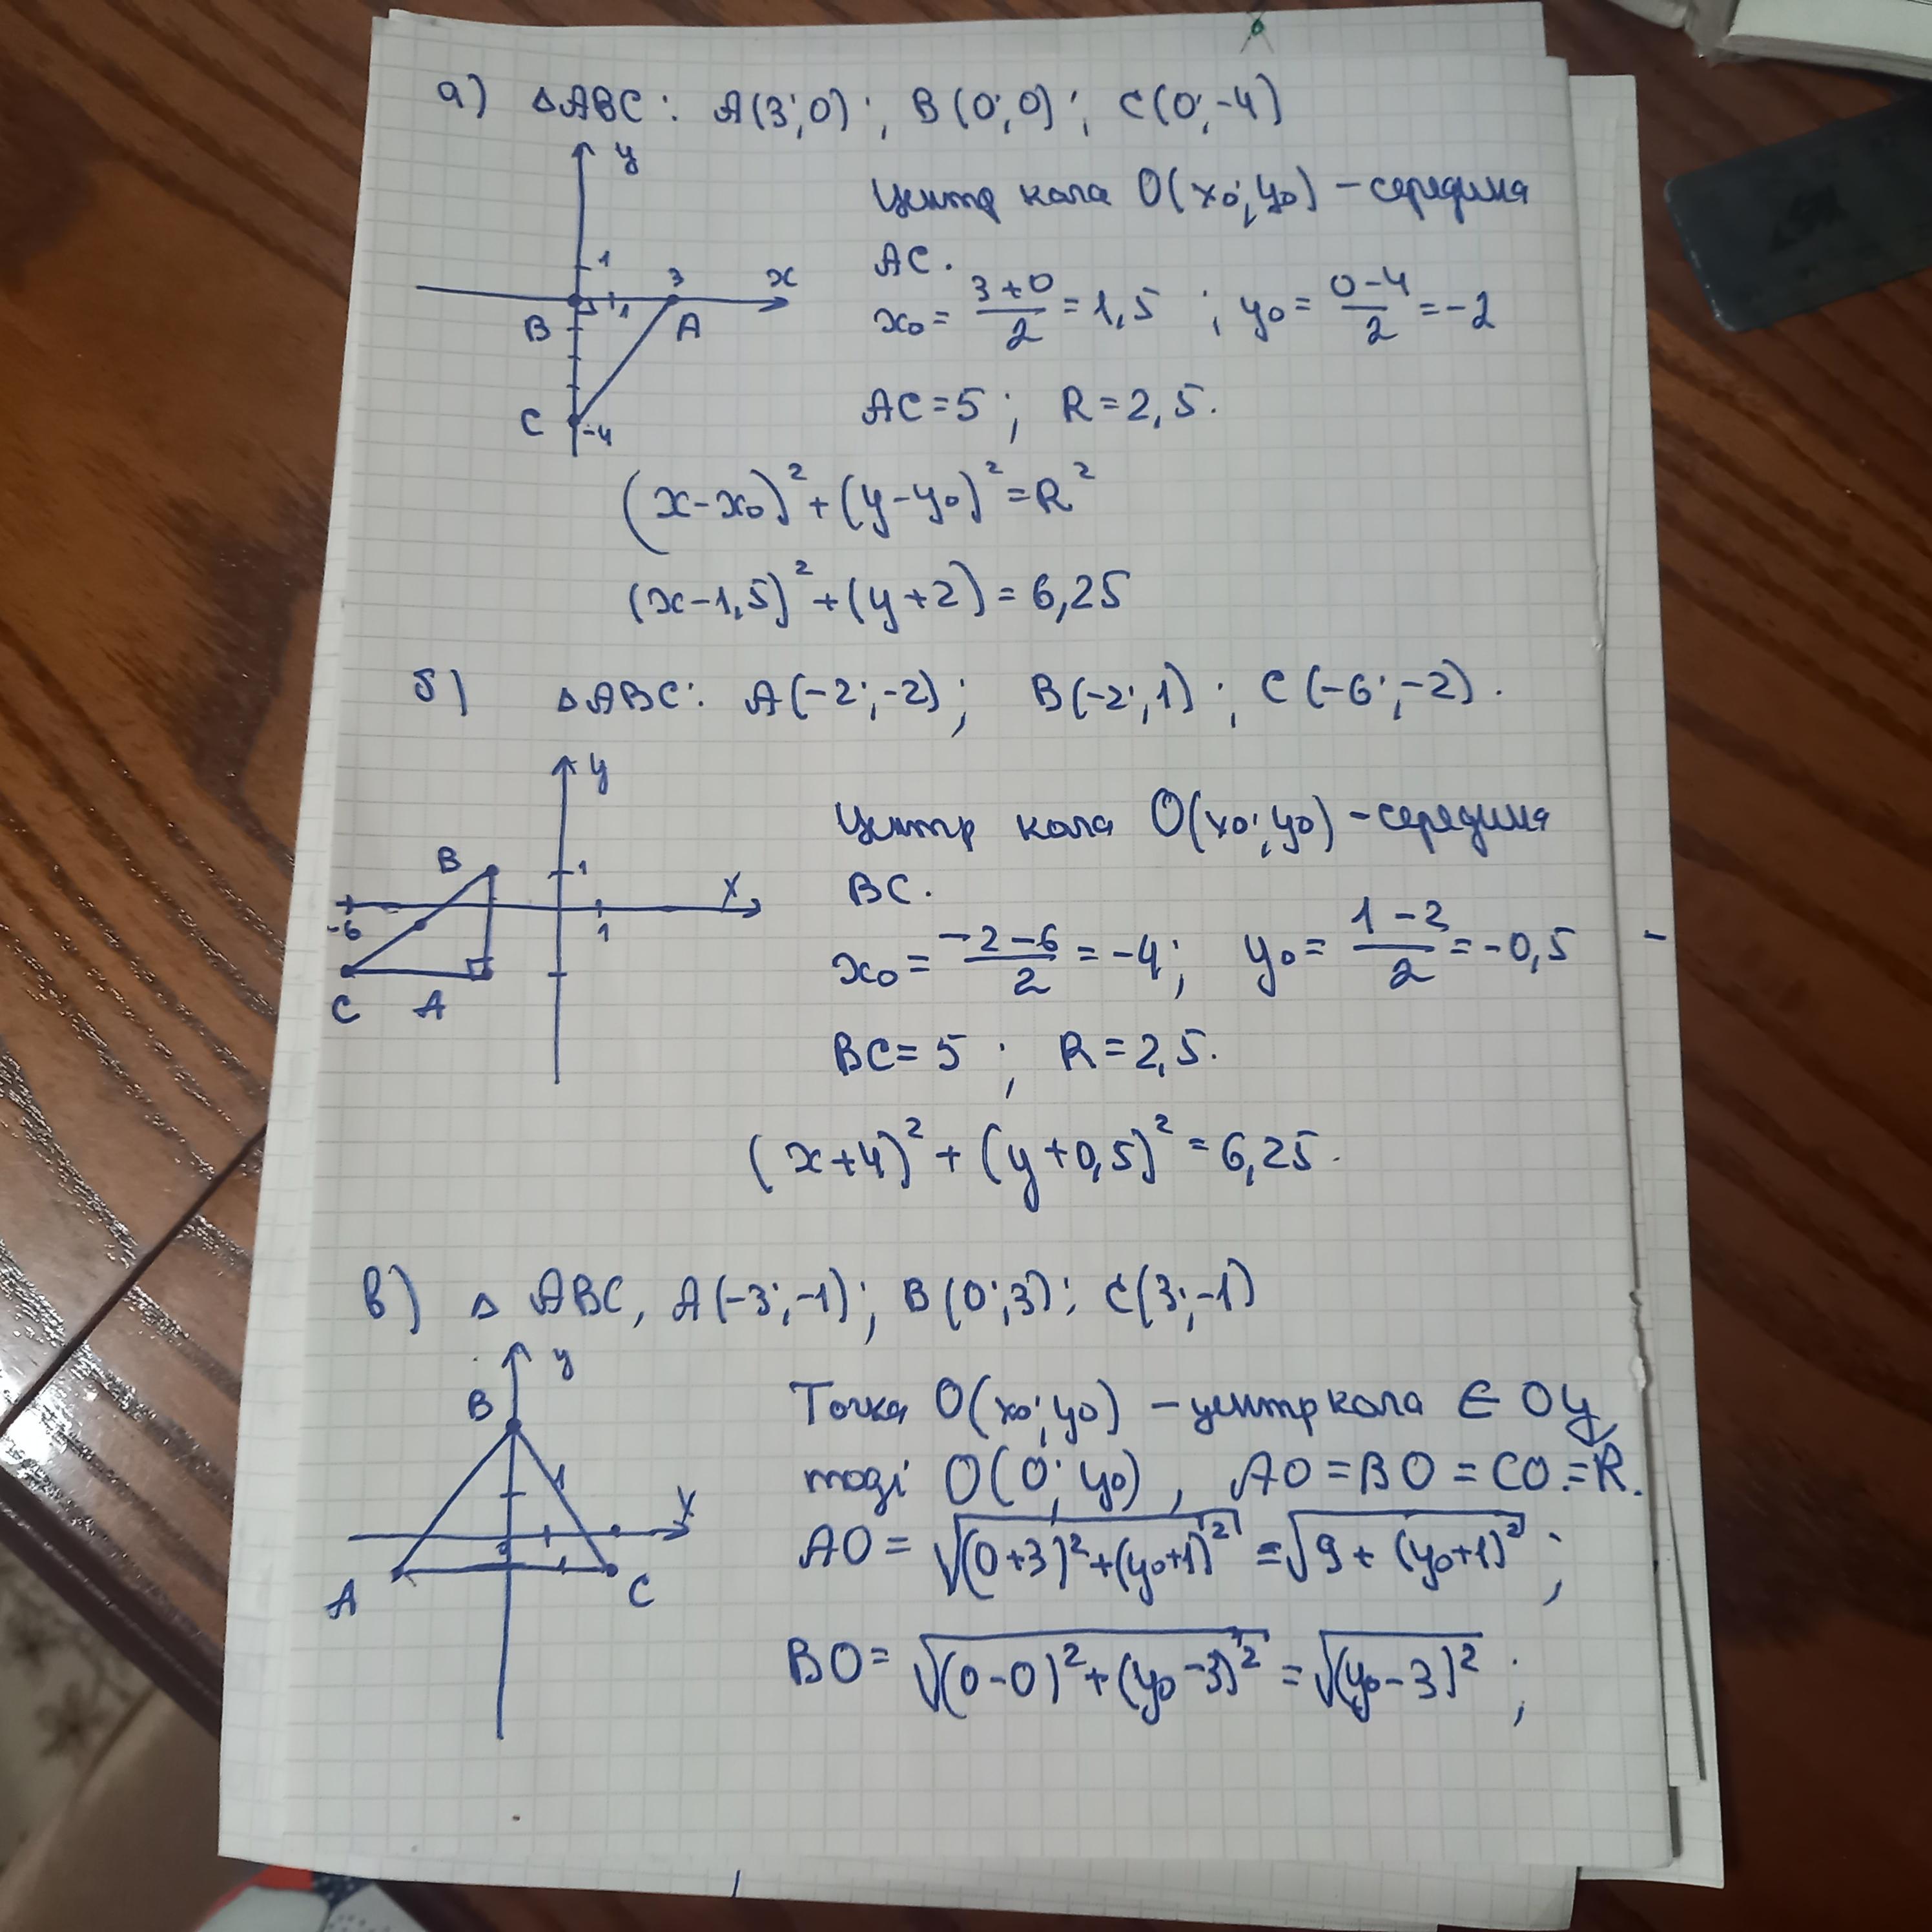 а) △ABC: A(3;0); B(0;0); C(0;-4)
y
1
3
x
1
B
A
C
-4
Центр кола O(x₀;y₀) – середина
AC.
x₀ = (3+0)/2 = 1,5 ; y₀ = (0-4)/2 = -2
AC = 5 ; R = 2,5.
(x-x₀)² + (y-y₀)² = R²
(x-1,5)² + (y+2) = 6,25
б) △ABC: A(-2;-2); B(-2;1); C(-6;-2).
y
B
1
X
-6
1
C
A
Центр кола O(x₀;y₀) – середина
BC.
x₀ = (-2-6)/2 = -4; y₀ = (1-2)/2 = -0,5
BC = 5 ; R = 2,5.
(x+4)² + (y+0,5)² = 6,25.
в) △ ABC, A(-3;-1); B(0;3); C(3;-1)
y
B
X
A
C
Точка O(x₀;y₀) – центр кола ∈ Oy,
тоді O(0;y₀), AO = BO = CO = R.
AO = √((0+3)² + (y₀+1)²) = √(9 + (y₀+1)²) ;
BO = √((0-0)² + (y₀-3)²) = √((y₀-3)²) ;